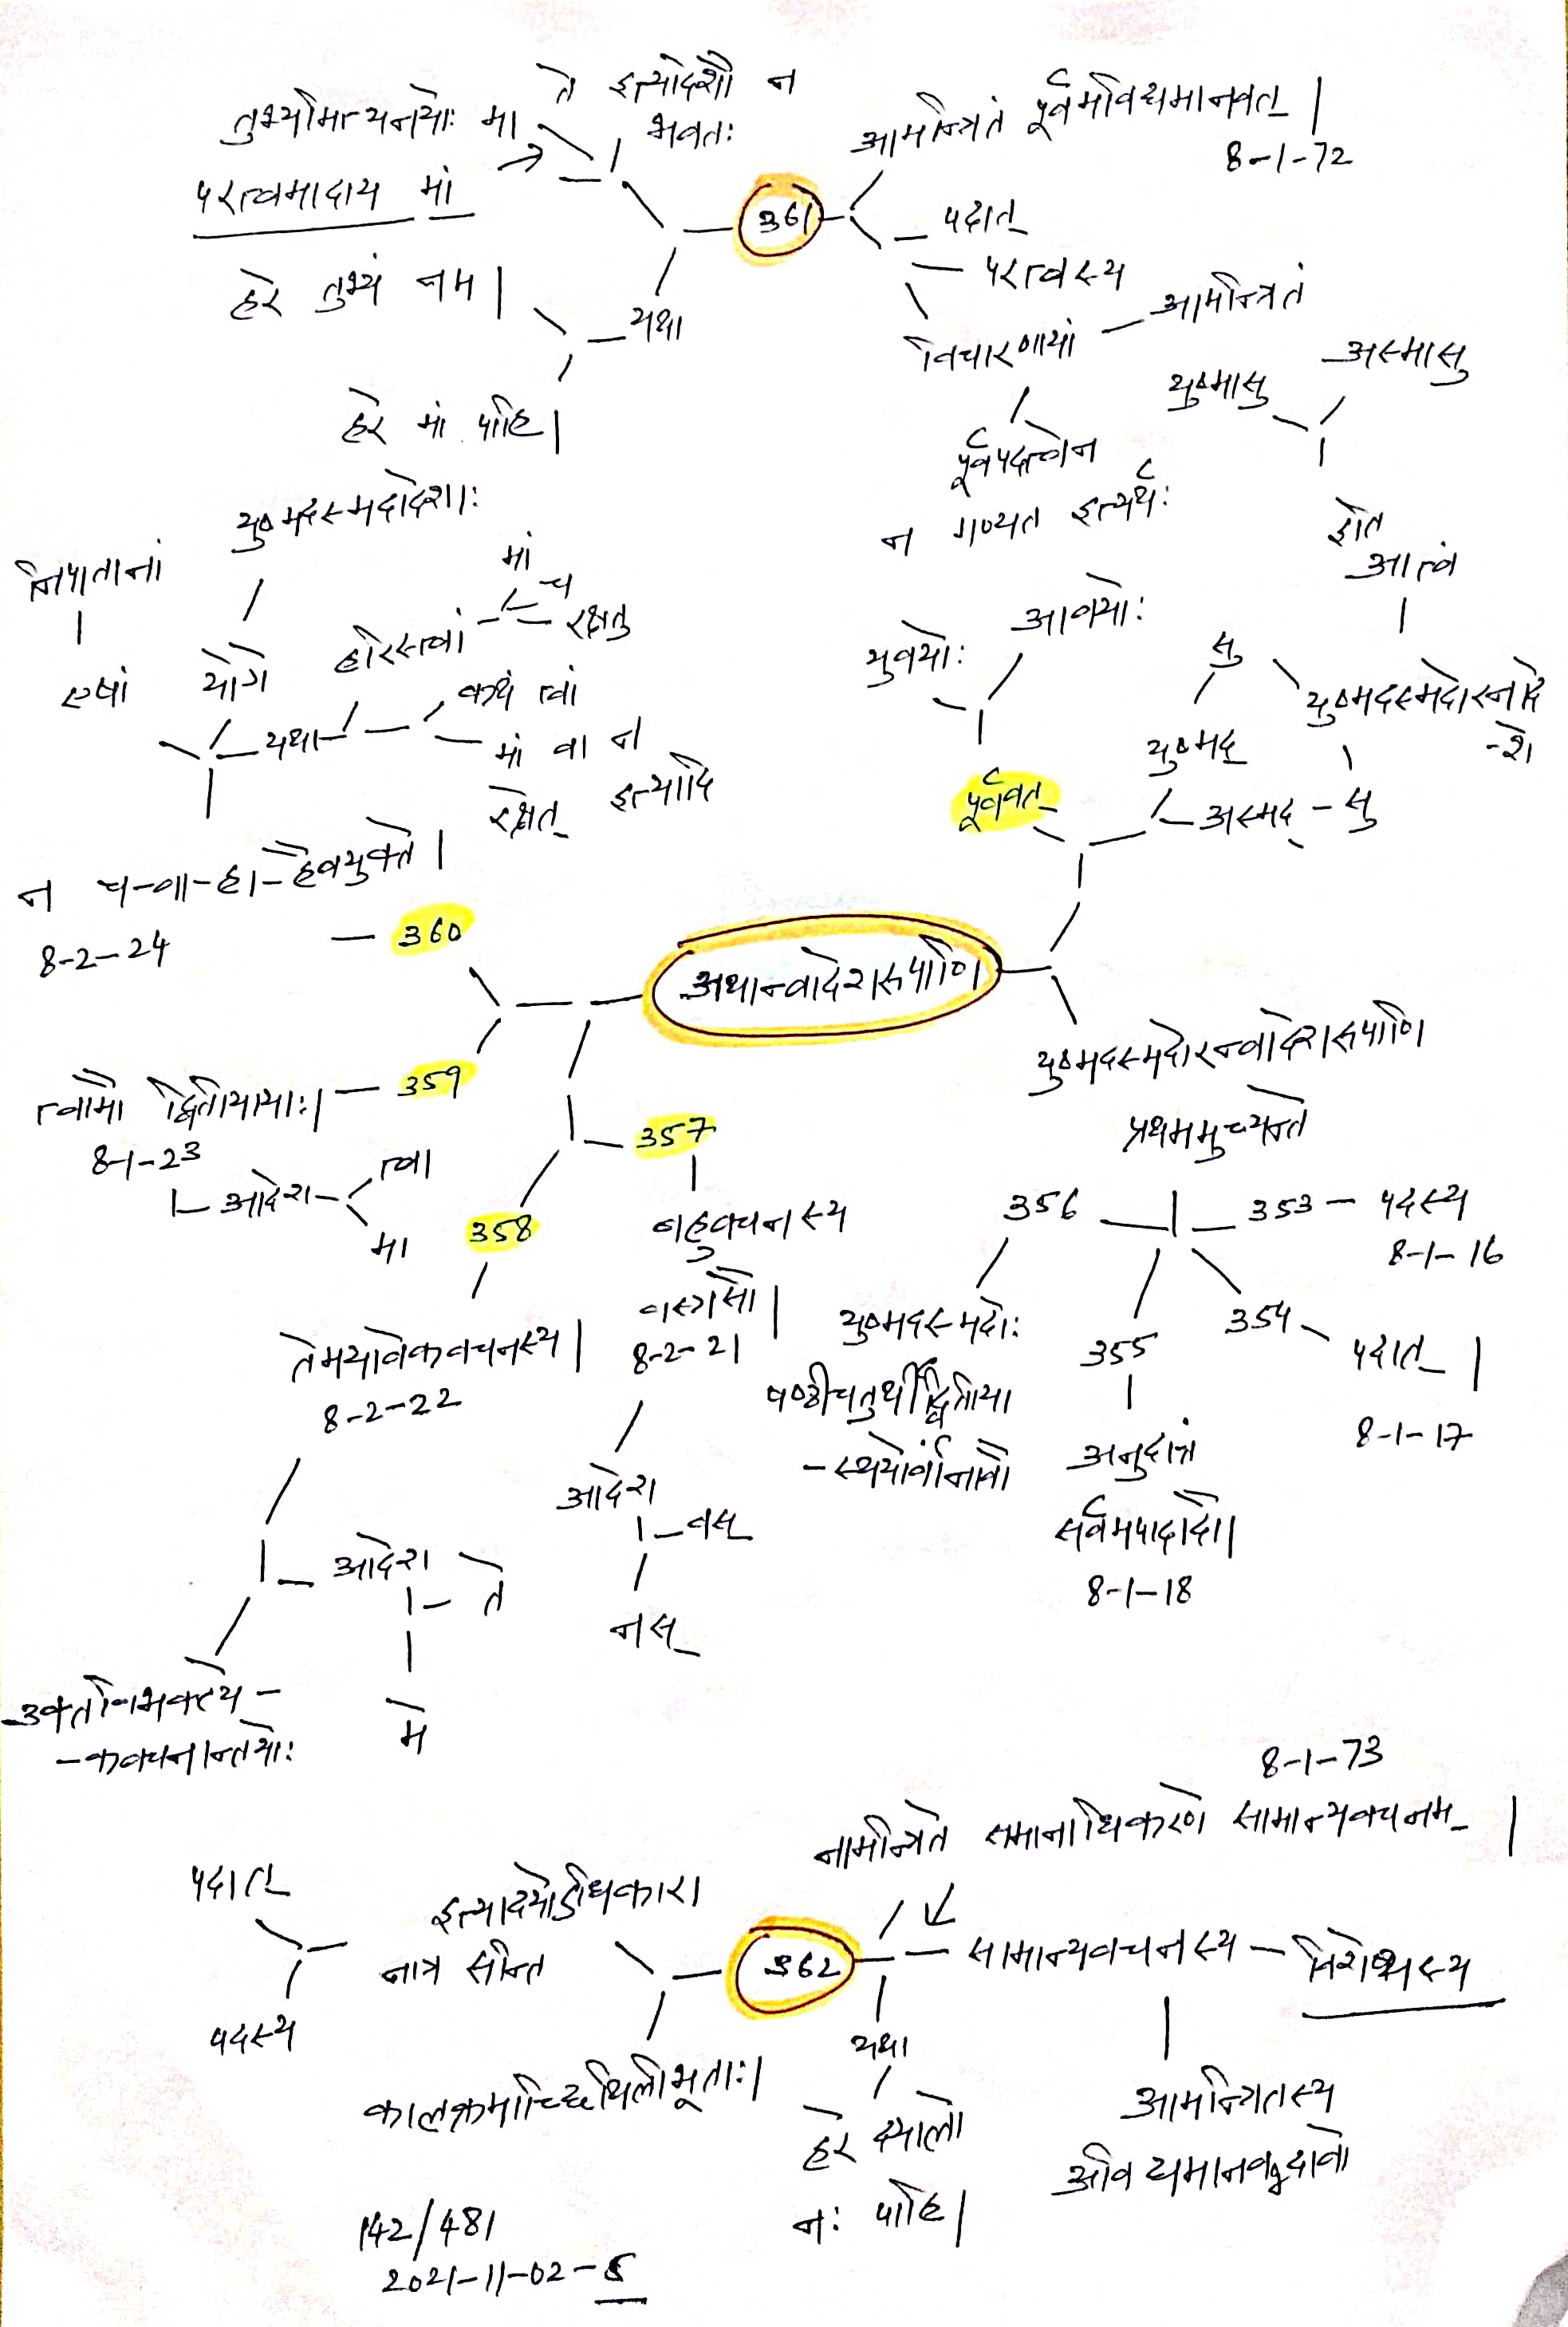 तुभ्यमित्यनयोः मा
ते इत्यादेशौ न
भवतः
परत्वमादाय मां
हरे तुभ्यं नम।
यथा
हरे मां पाहि।
361
आमन्त्रितं पूर्वमविद्यमानवत्।
8-1-72
पदात्
परत्वस्य
विचारणायां
आमन्त्रितं
पूर्वपदत्वेन
न गण्यत इत्यर्थः
युष्मासु
अस्मासु
इति
आत्वं
युष्मदस्मदोरनादे
-शे
सु
युष्मद्
अस्मद् - सु
युवयोः
आवयोः
पूर्ववत्
युष्मदस्मदादेशाः
निपातानां
एषां
योगे
यथा
हरिस्त्वां
मां
च
रक्षतु
कथं त्वां
मां वा न
रक्षेत्
इत्यादि
न च-वा-हा-हैवयुक्ते।
8-2-24
360
अथान्वादेशरूपाणि
त्वामौ द्वितीयायाः।
8-1-23
359
आदेश
त्वा
मा
358
357
बहुवचनस्य
वस्नसौ।
8-2-21
आदेश
वस्
नस्
तेमयावेकवचनस्य।
8-2-22
आदेश
ते
मे
उक्तविभक्त्ये-
-कवचनान्तयोः
युष्मदस्मदोरन्वादेशरूपाणि
प्रथममुच्यन्ते
356
353 - पदस्य
8-1-16
354
पदात्।
8-1-17
355
अनुदात्तं
सर्वमपादादौ।
8-1-18
युष्मदस्मदोः
षष्ठीचतुर्थीद्वितीया
-स्थयोर्वांनावौ
8-1-73
नामन्त्रिते समानाधिकरणे सामान्यवचनम्।
पदात्
पदस्य
इत्यादयोऽधिकारा
नात्र सन्ति
362
सामान्यवचनस्य - विशेष्यस्य
यथा
कालक्रमाच्छिथिलीभूताः।
हरे दयालो
नः पाहि।
आमन्त्रितस्य
अविद्यमानवद्भावो
142/481
2021-11-02-5